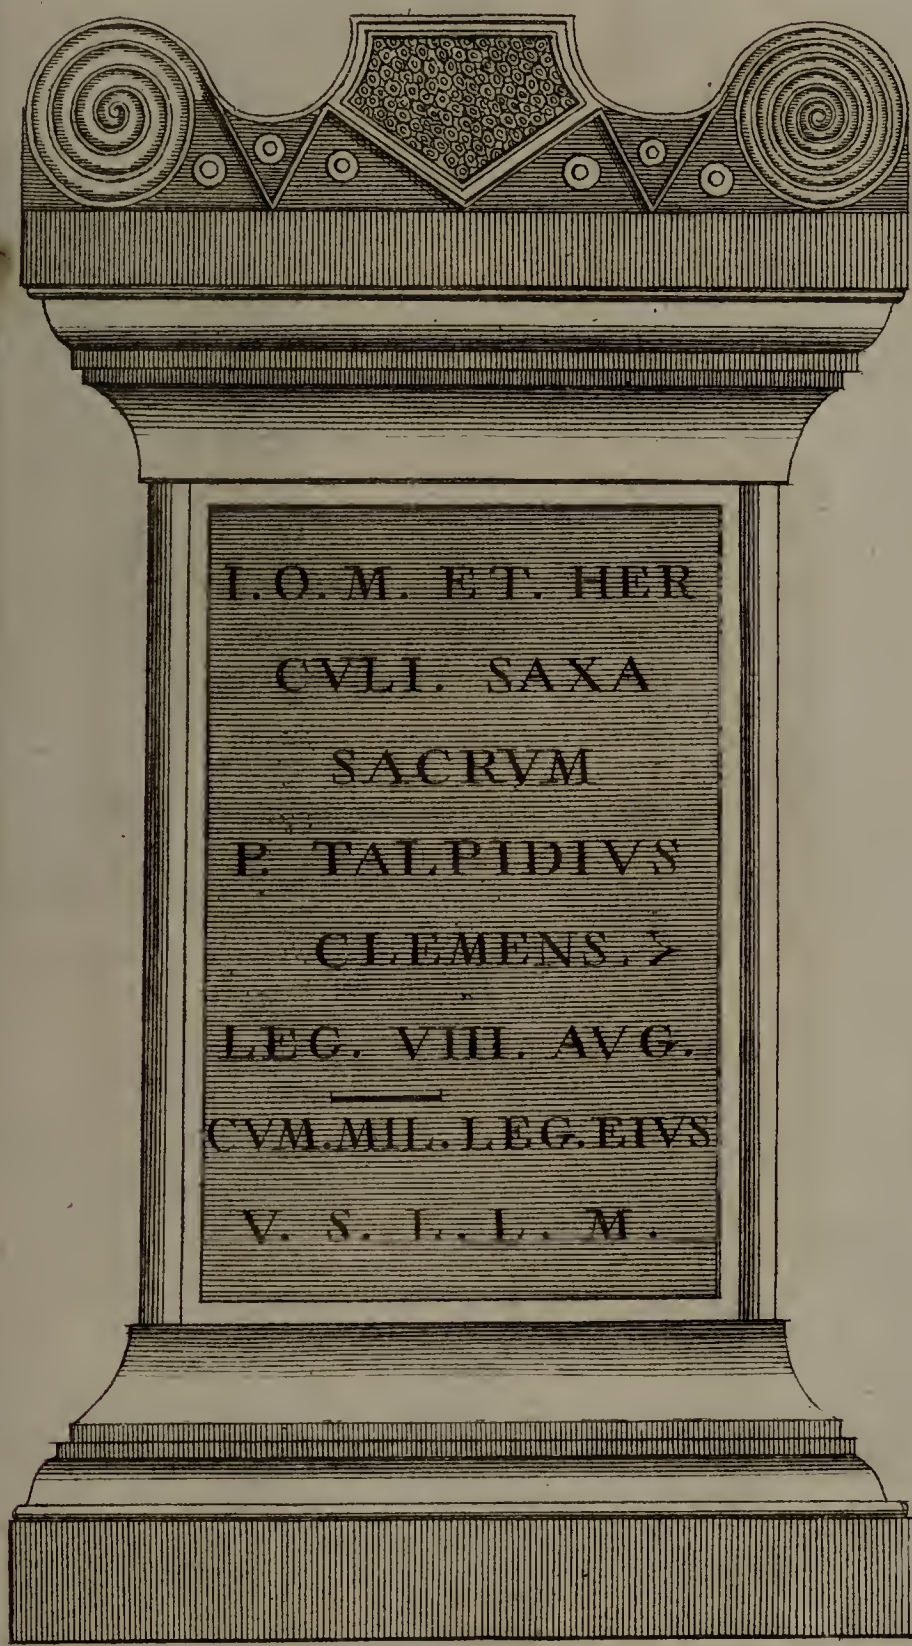 I. O. M. ET. HER
CVLI. SAXA
SACRVM
P. TALPIDIVS
CLEMENS. >
LEG. VIII. AVG.
CVM. MIL. LEG. EIVS
V. S. L. L. M.